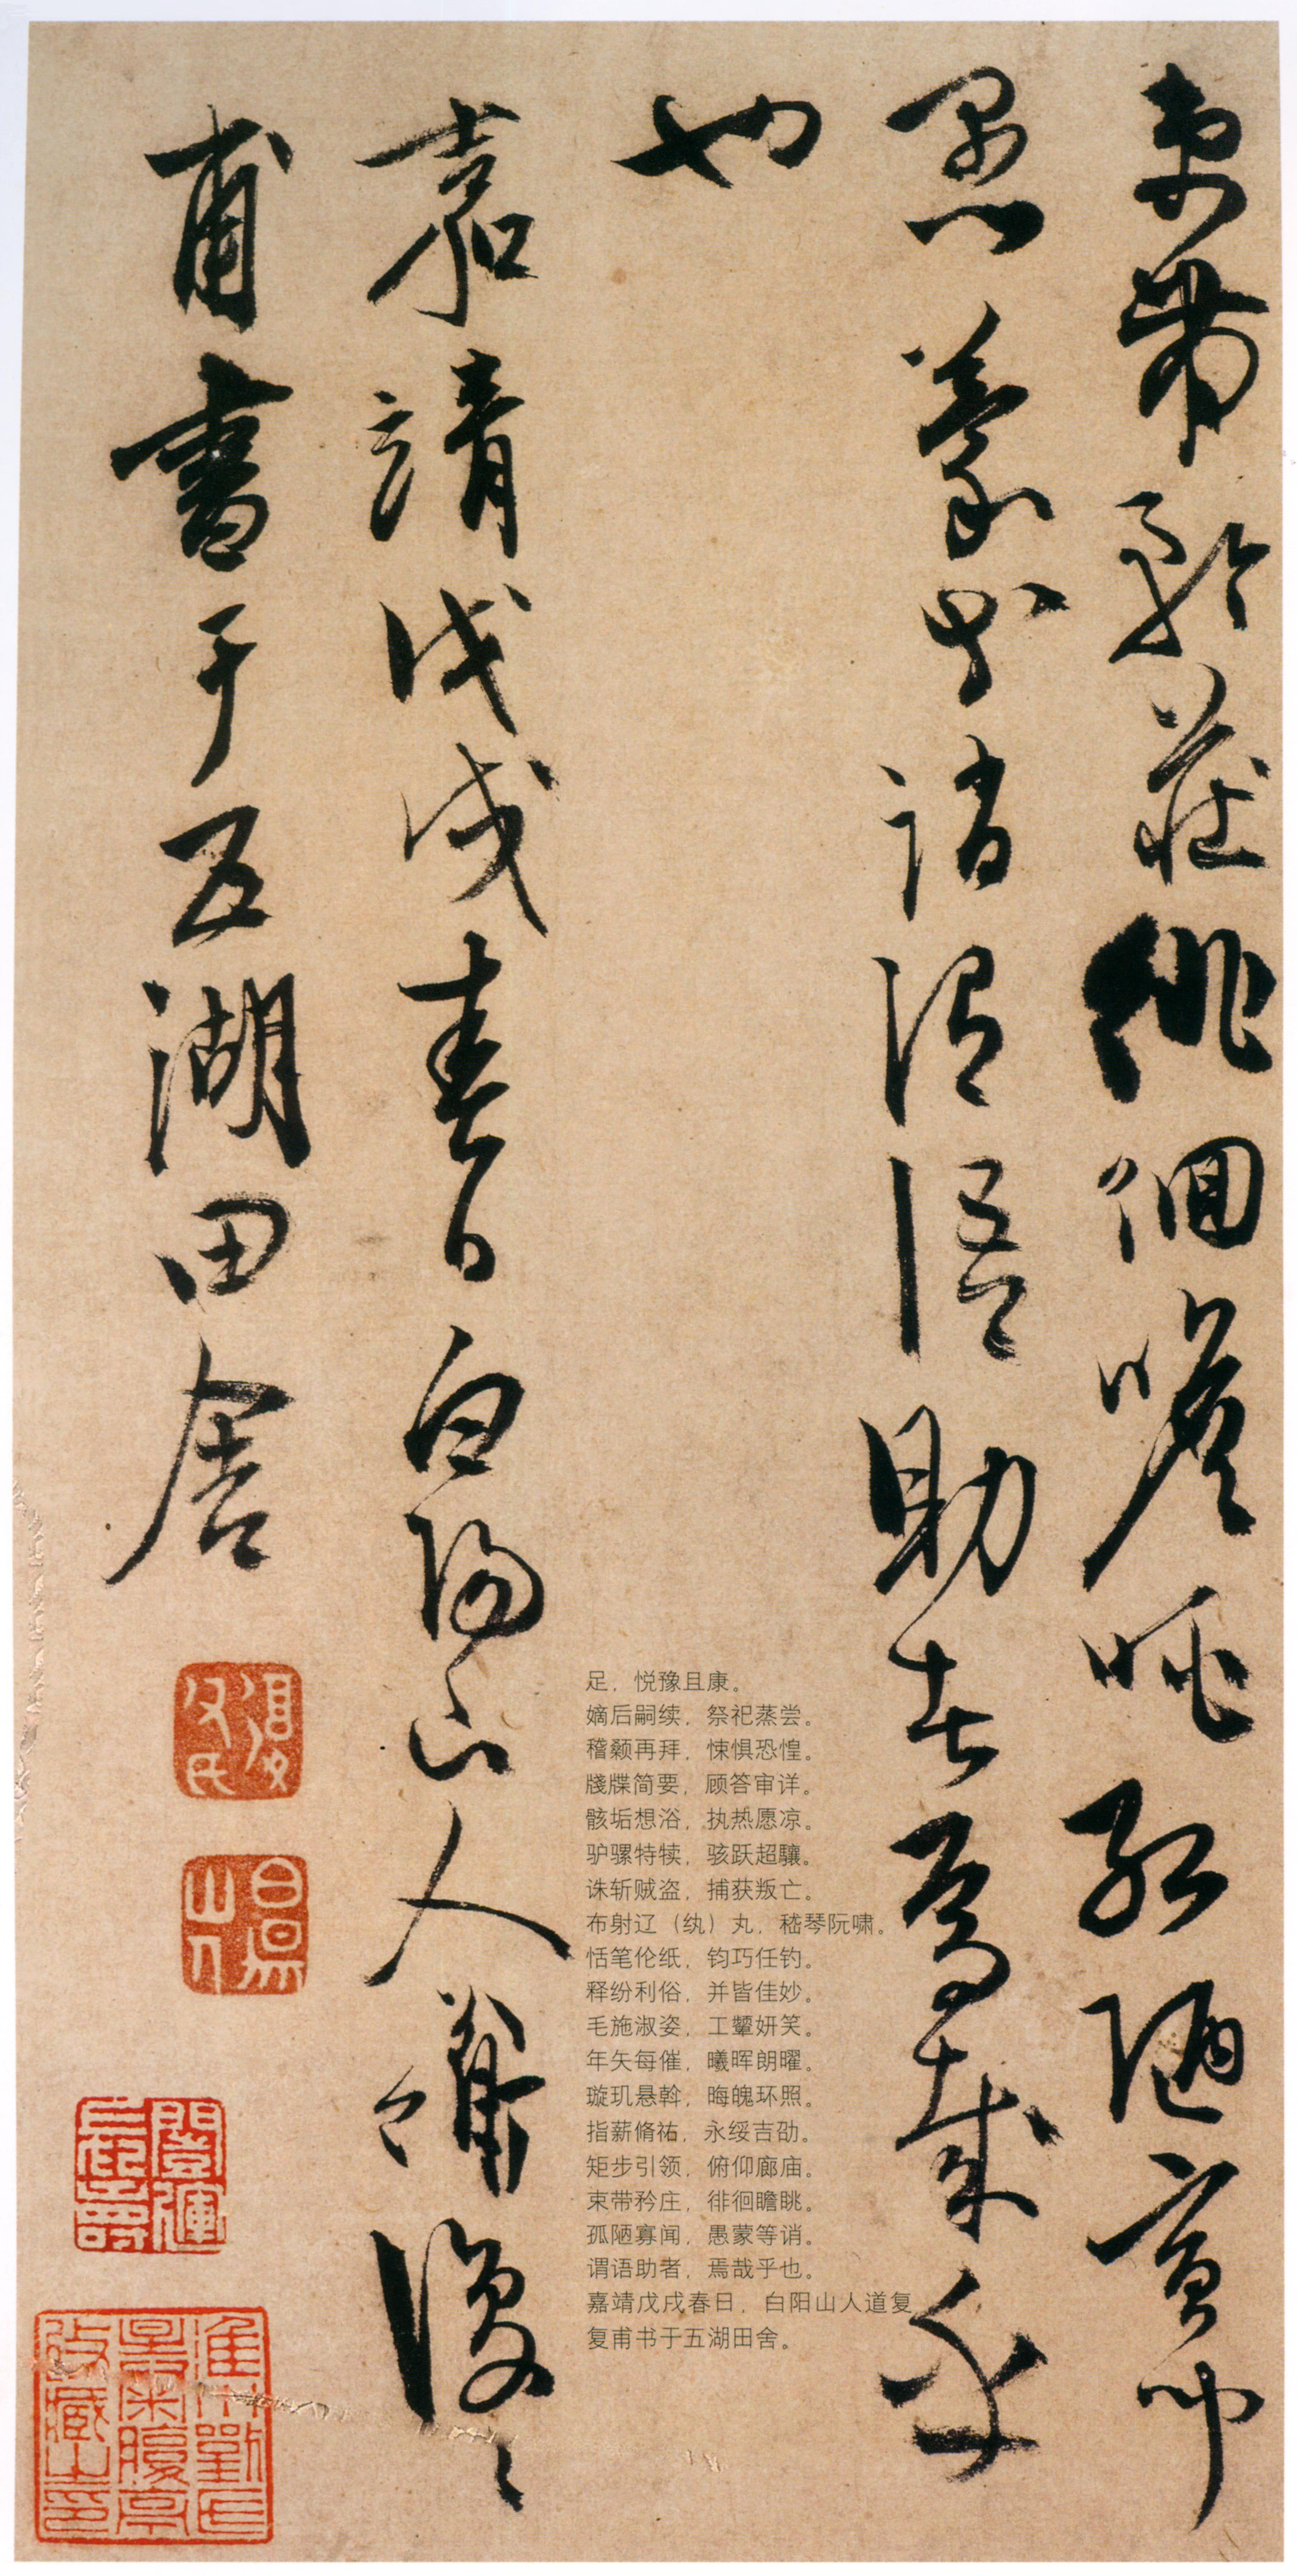 束帶矜莊徘徊瞻眺孤陋寡聞
愚蒙等誚謂語助者焉哉乎
也
嘉靖戊戌春日白陽山人道復〻
甫書于五湖田舍
足，悦豫且康。
嫡后嗣续，祭祀蒸尝。
稽颡再拜，悚惧恐惶。
牋牒简要，顾答审详。
骸垢想浴，执热愿凉。
驴骡特犊，骇跃超驤。
诛斩贼盗，捕获叛亡。
布射辽（纨）丸，嵇琴阮啸。
恬笔伦纸，钧巧任钓。
释纷利俗，并皆佳妙。
毛施淑姿，工颦妍笑。
年矢每催，曦晖朗曜。
璇玑悬斡，晦魄环照。
指薪脩祐，永绥吉劭。
矩步引领，俯仰廊庙。
束带矜庄，徘徊瞻眺。
孤陋寡闻，愚蒙等诮。
谓语助者，焉哉乎也。
嘉靖戊戌春日，白阳山人道复
复甫书于五湖田舍。
復父氏
白陽山人